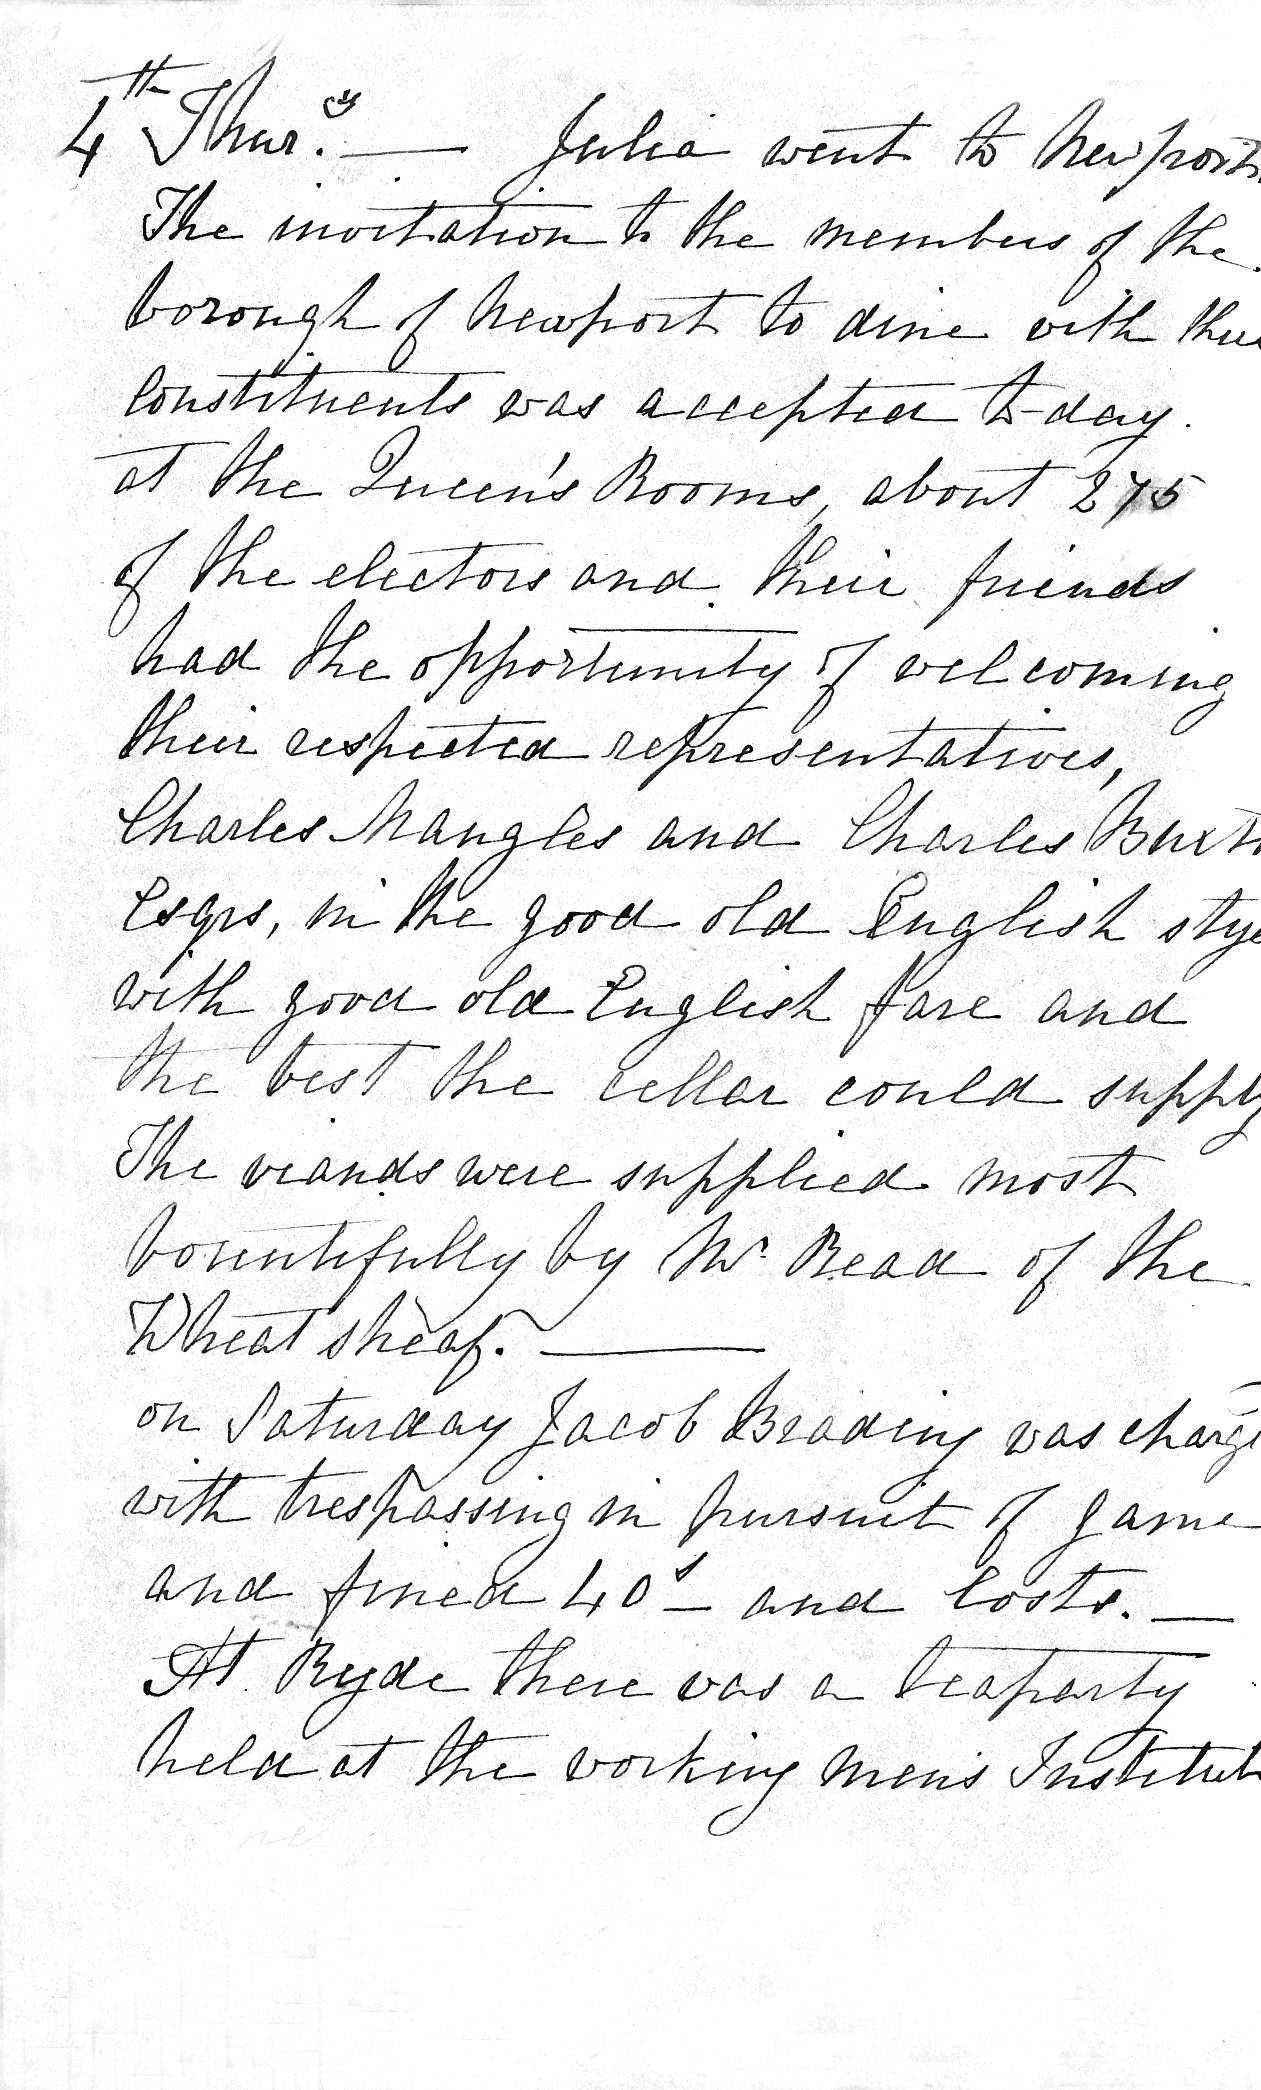 4th Thurdy. — Julia went to Newport.
The invitation to the members of the
borough of Newport to dine with their
Constituents was accepted to-day.
at the Queen's Rooms, about 275
of the electors and their friends
had the opportunity of welcoming
their respected representatives,
Charles Mangles and Charles Buxton
Esqrs, in the good old English stye
with good old English fare and
the best the cellar could supply
The viands were supplied most
bountifully by Mr Read of the
Wheatsheaf. —
on Saturday Jacob Brading was charge
with trespassing in pursuit of game
and fined 40s — and Costs. —
At Ryde there was a teaparty
held at the working men's Institut